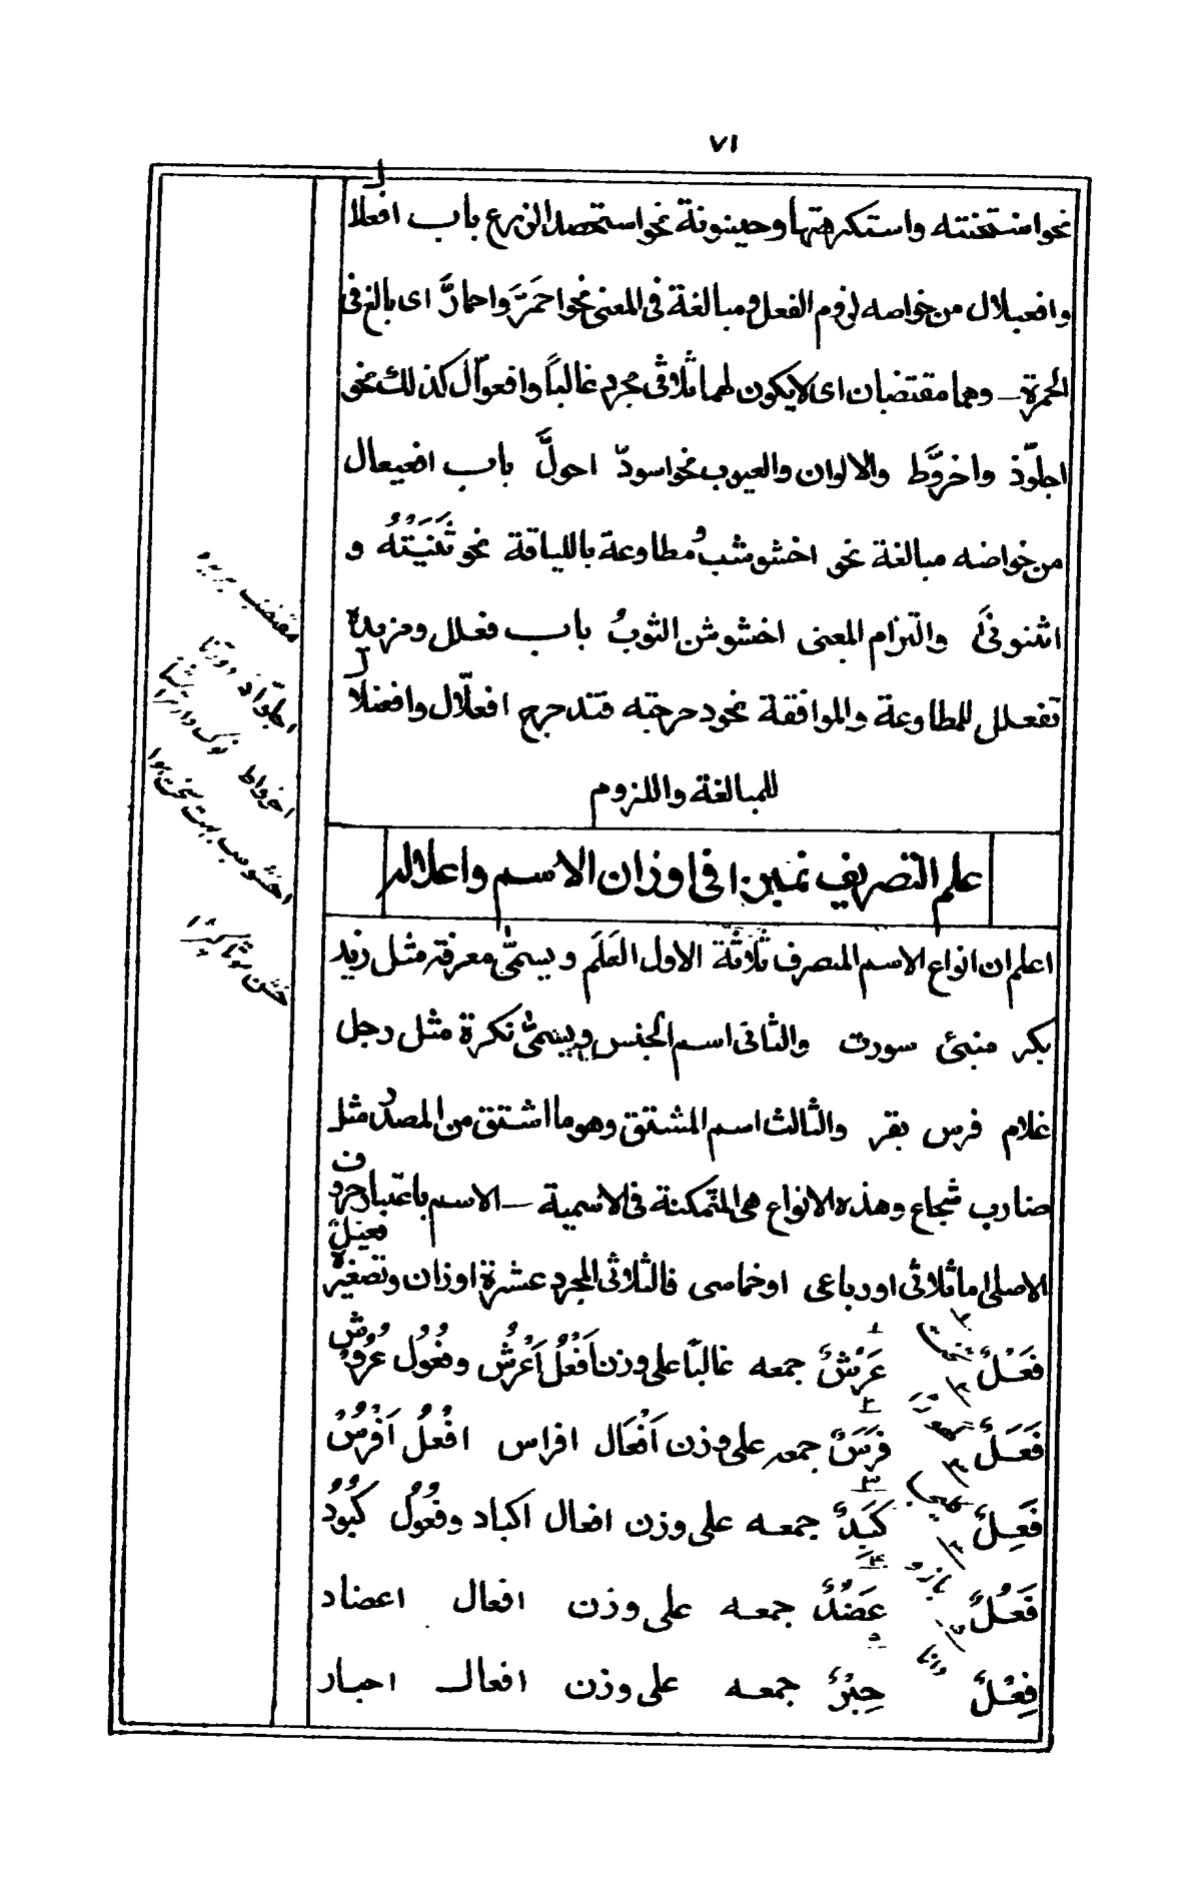 ٧١
نحو استخنته واستكرهتها وحينونة نحو استحصد الزرع باب افعلال
وافعيلال من خواصه لزوم الفعل ومبالغة فى المعنى نحو احمَرَّ واحمارَّ اى بالغ فى
الحمرة ــ وهما مقتضبان اى لايكون لهما ثلاثى مجرد غالباً وافعوّال كذلك نحو
اجلوّذ واخروَّط والالوان والعيوب نحو اسودّ احولَّ باب افعيعال
من خواصه مبالغة نحو اخشوشبُ مطاوعة باللياقة نحو ثَنَيْتُهُ و
اثنونىٰ والتزام المعنى اخشوشن الثوبُ باب فعلل ومزيده
تفعلل للمطاوعة والموافقة نحو دحرجته فتدحرج افعلّال وافعنلال
للمبالغة واللزوم
علم التصريف نمبر ١ فى اوزان الاسم واعلاله
اعلم ان انواع الاسم المنصرف ثلاثة الاول العَلَم ويسمّٰى معرفة مثل زيد
بكر منبئ سورت والثانى اسم الجنس ويسمّٰى نكرة مثل رجل
غلام فرس بقر والثالث اسم المشتق وهو ما اشتق من المصدر مثل
ضارب شجاع وهذه الانواع هى المتمكنة فى الاسمية ــ الاسم باعتبار حروف
الاصلى اما ثلاثى او رباعى او خماسى فالثلاثى المجرد عشرة اوزان وتصغيره فعيل
فَعْلٌ تخت عَرْشٌ جمعه غالبًا على وزن اَفْعُلٌ اَعْرُشٌ وفُعُولٌ عُرُوشٌ
فَعَلٌ گھوڑا فَرَسٌ جمعه على وزن اَفْعَال افراس افْعُلُ اَفْرُسٌ
فَعِلٌ كَبِدٌ جمعه على وزن افعال اكباد وفُعُولٌ كُبُودٌ
فَعُلٌ بازو عَضُدٌ جمعه على وزن افعال اعضاد
فِعْلٌ دانا حِبْرٌ جمعه على وزن افعال احبار
مقتضب بریدہ
اجلوّاذ دوڑنا
اخشوشب بہت سخت ہوا